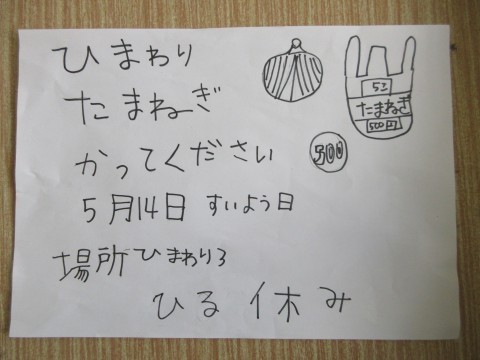 ひまわり
たまねぎ
かってください
5月14日 すいよう日
場所ひまわり3
ひる休み
5コ
たまねぎ
500円
500